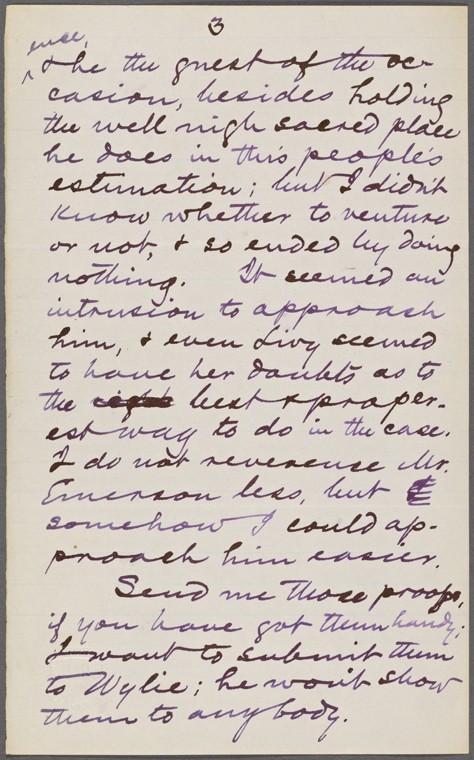 3
ence,
& he the guest of the oc-
casion, besides holding
the well nigh sacred place
he does in this people's
estimation; but I didn't
know whether to venture
or not, & so ended by doing
nothing. It seemed an
intrusion to approach
him, & even Livy seemed
to have her doubts as to
the best & proper-
est way to do in the case.
I do not reverence Mr.
Emerson less, but
somehow I could ap-
proach him easier.
Send me those proofs,
if you have got them handy;
I want to submit them
to Wylie; he won't show
them to anybody.